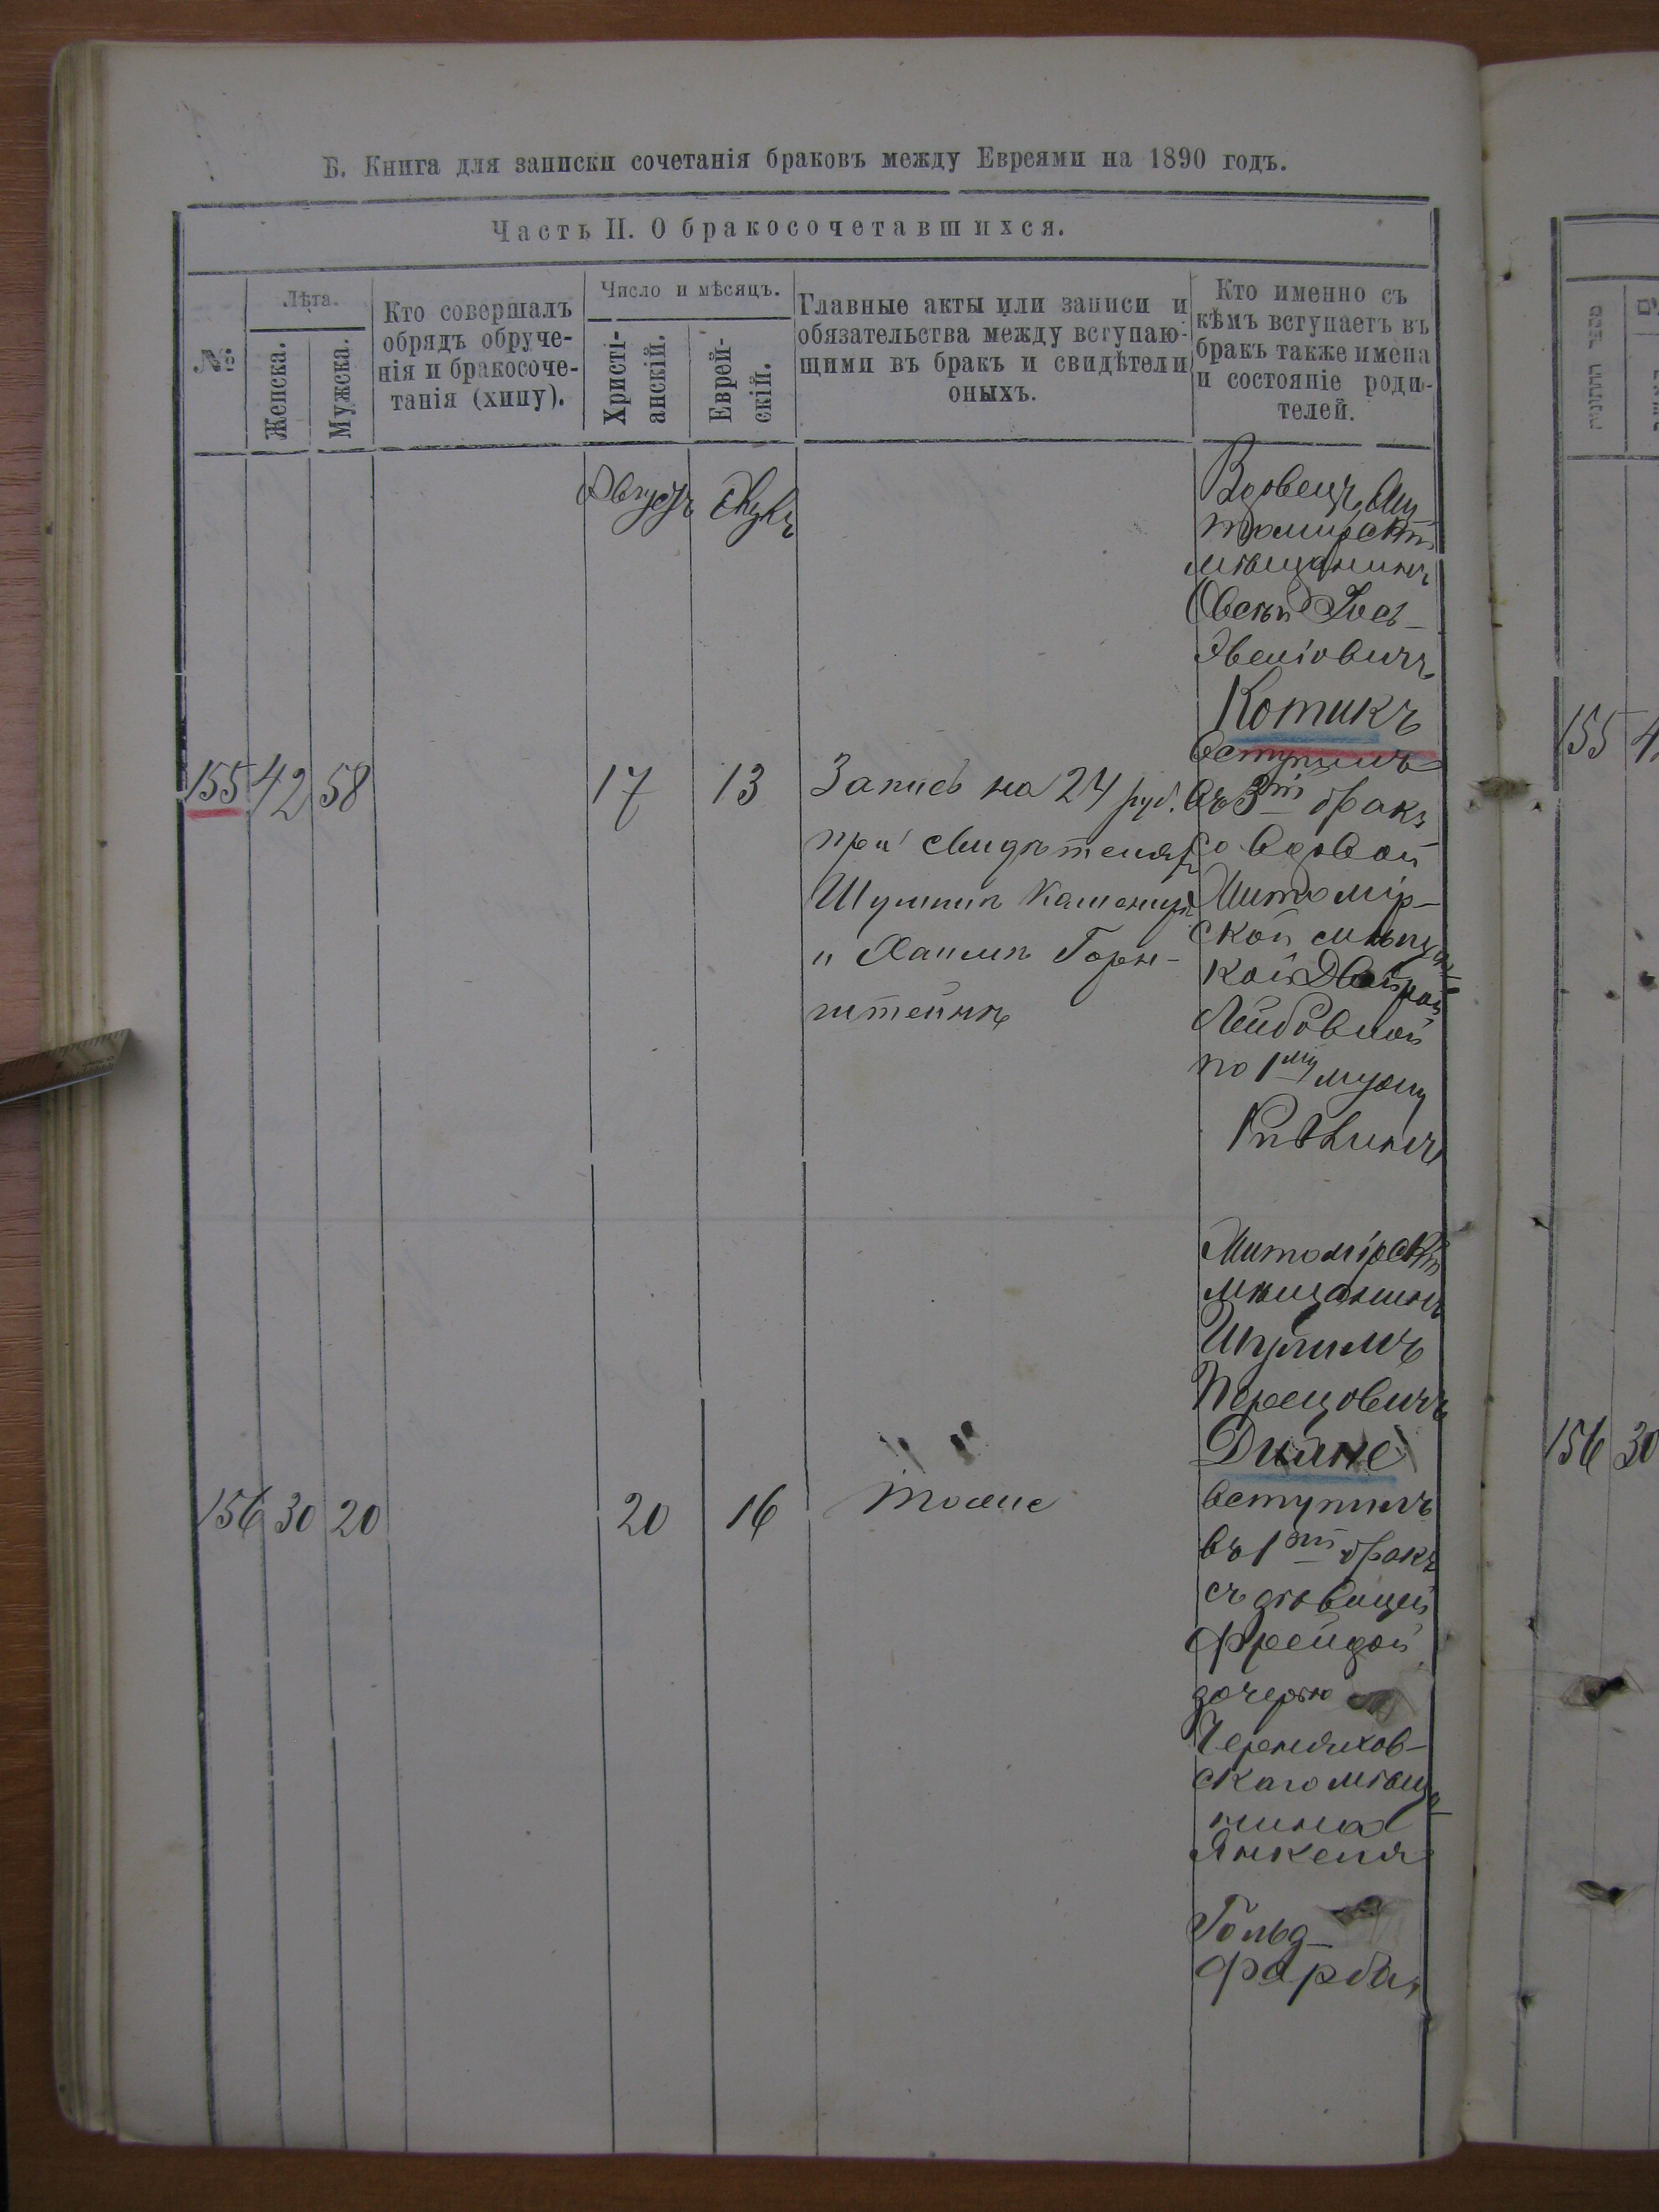 Б. Книга для записки сочетанія браковъ между Евреями на 1890 годъ.
Часть II. О бракосочетавшихся.
№
Лѣта.
Женска.
Мужска.
Кто совершалъ
обрядъ обруче-
нія и бракосоче-
танія (хипу).
Число и мѣсяцъ.
Христі-
анскій.
Еврей-
скій.
Главные акты или записи и
обязательства между вступаю-
щими въ бракъ и свидѣтели
оныхъ.
Кто именно съ
кѣмъ вступаетъ въ
бракъ также имена
и состояніе роди-
телей.
Августъ
155
42
58
17
13
Запись на 24 руб.
при свидѣтеляхъ
Шулимѣ
и Хаимѣ Горен-
штейнѣ
Вдовецъ Жи
томирскій
мѣщанинъ
Овсѣй Іось
Котикъ
вступилъ
въ 3й бракъ
со вдовой
Житомір-
ской мѣщан
кой Двойрой
Лейбовной
по 1му мужу
156
30
20
20
16
тоже
Житомірскій
мѣщанинъ
Шулимъ
Перецовичъ
вступилъ
въ 1й бракъ
съ дѣвицей
Фрейдой
дочерью
Черняхов-
скаго мѣща
нина
Янкеля
Гольд-
фарба
155
4
156
30